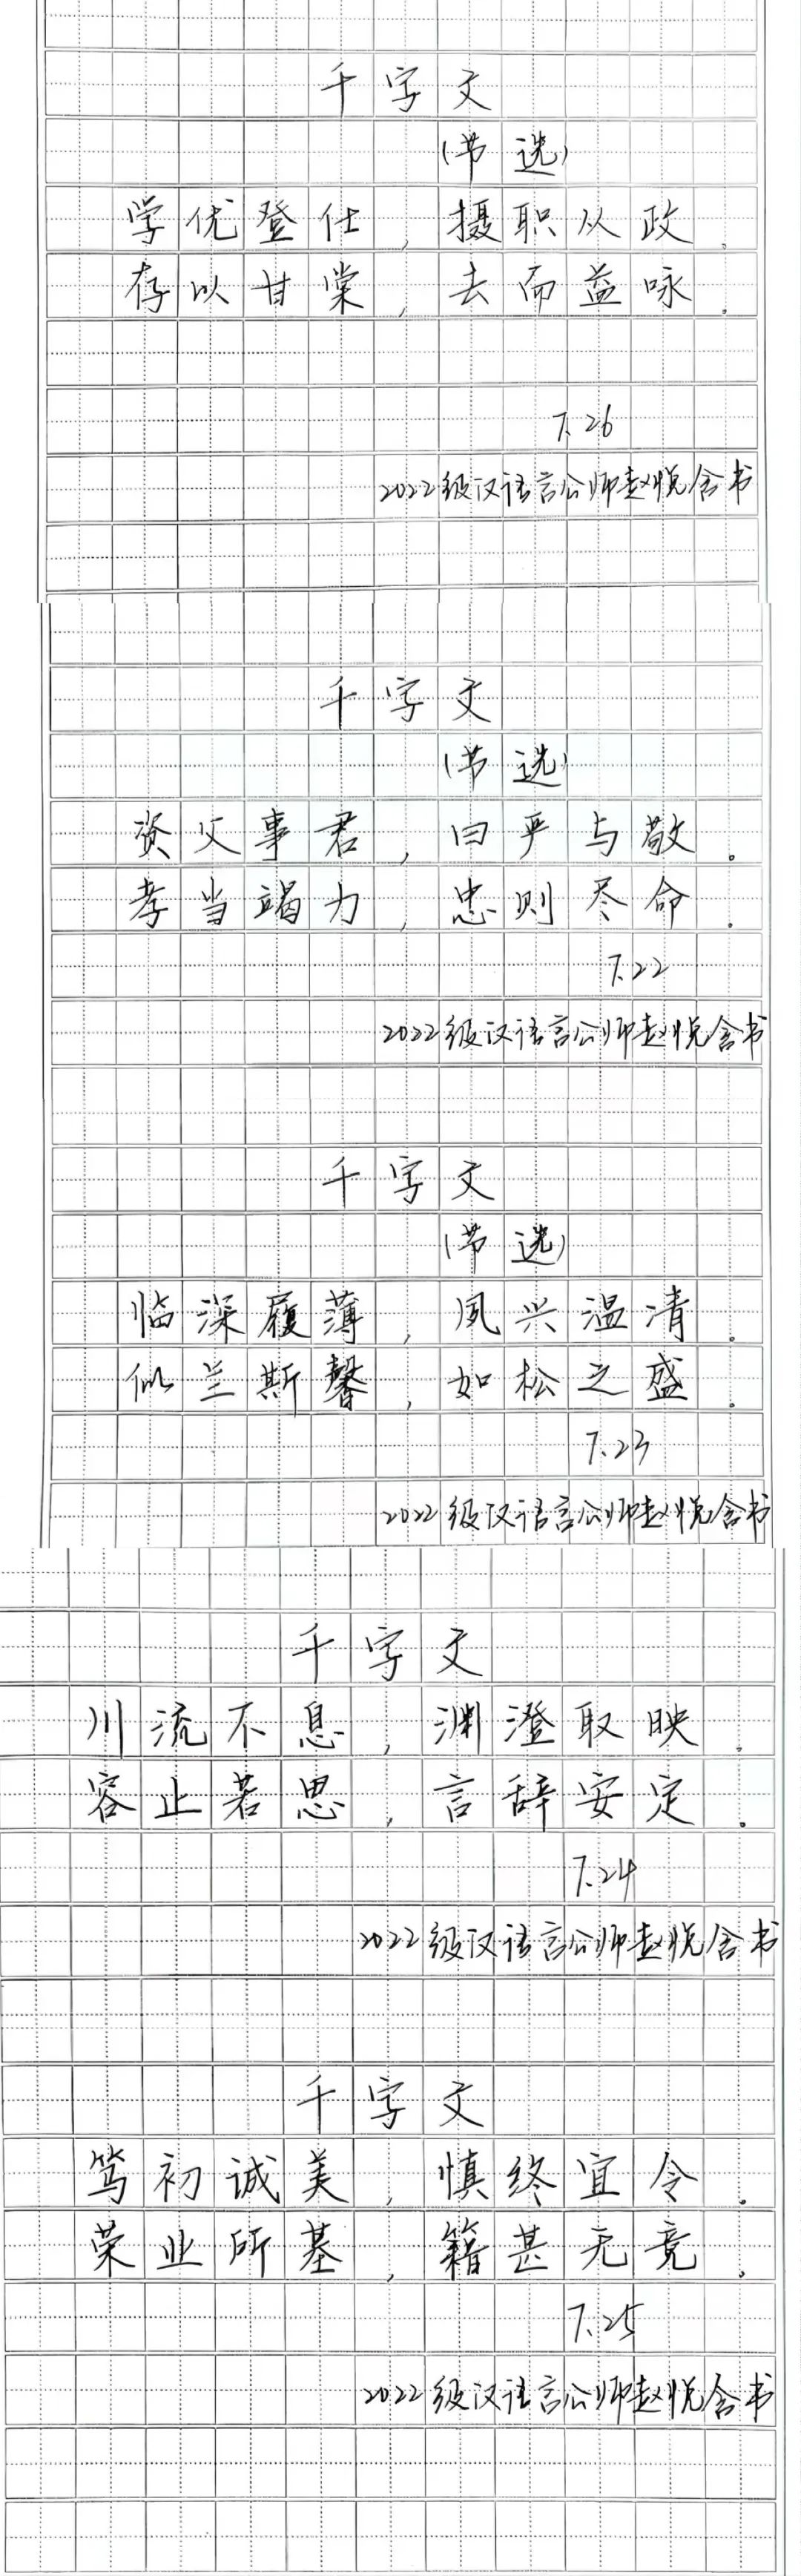 千字文
(节选)
学优登仕,摄职从政.
存以甘棠,去而益咏.
7.26
2022级汉语言公师赵悦含书
千字文
(节选)
资父事君,曰严与敬。
孝当竭力,忠则尽命.
7.22
2022级汉语言公师赵悦含书
千字文
(节选)
临深履薄,夙兴温凊.
似兰斯馨,如松之盛.
7.23
2022级汉语言公师赵悦含书
千字文
川流不息,渊澄取映.
容止若思,言辞安定.
7.24
2022级汉语言公师赵悦含书
千字文
笃初诚美,慎终宜令.
荣业所基,籍甚无竟.
7.25
2022级汉语言公师赵悦含书